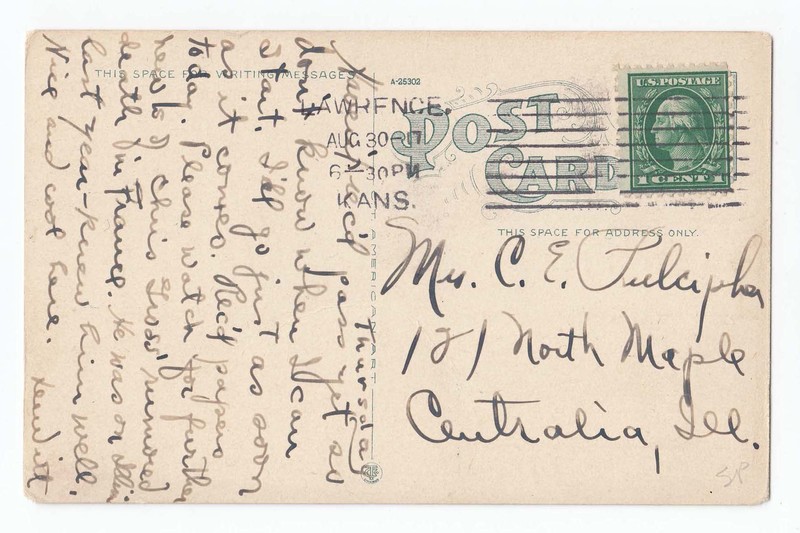 THIS SPACE FOR WRITING MESSAGES
A-25302
POST CARD
LAWRENCE,
AUG 30 17
6-30 PM
KANS.
U.S. POSTAGE
1 CENT 1
THIS SPACE FOR ADDRESS ONLY.
AMERICAN ART
Mrs. C. E. Pulcipher
121 North Maple
Centralia, Ill.
Thursday
Have rec'd pass yet so
don't know when I can
start. I'll go just as soon
as it comes. Rec'd papers
today. Please watch for further
news of Chris rumored
death in France. He was on Illini
last year—knew him well.
Nice and cool here.
Dewitt
SP